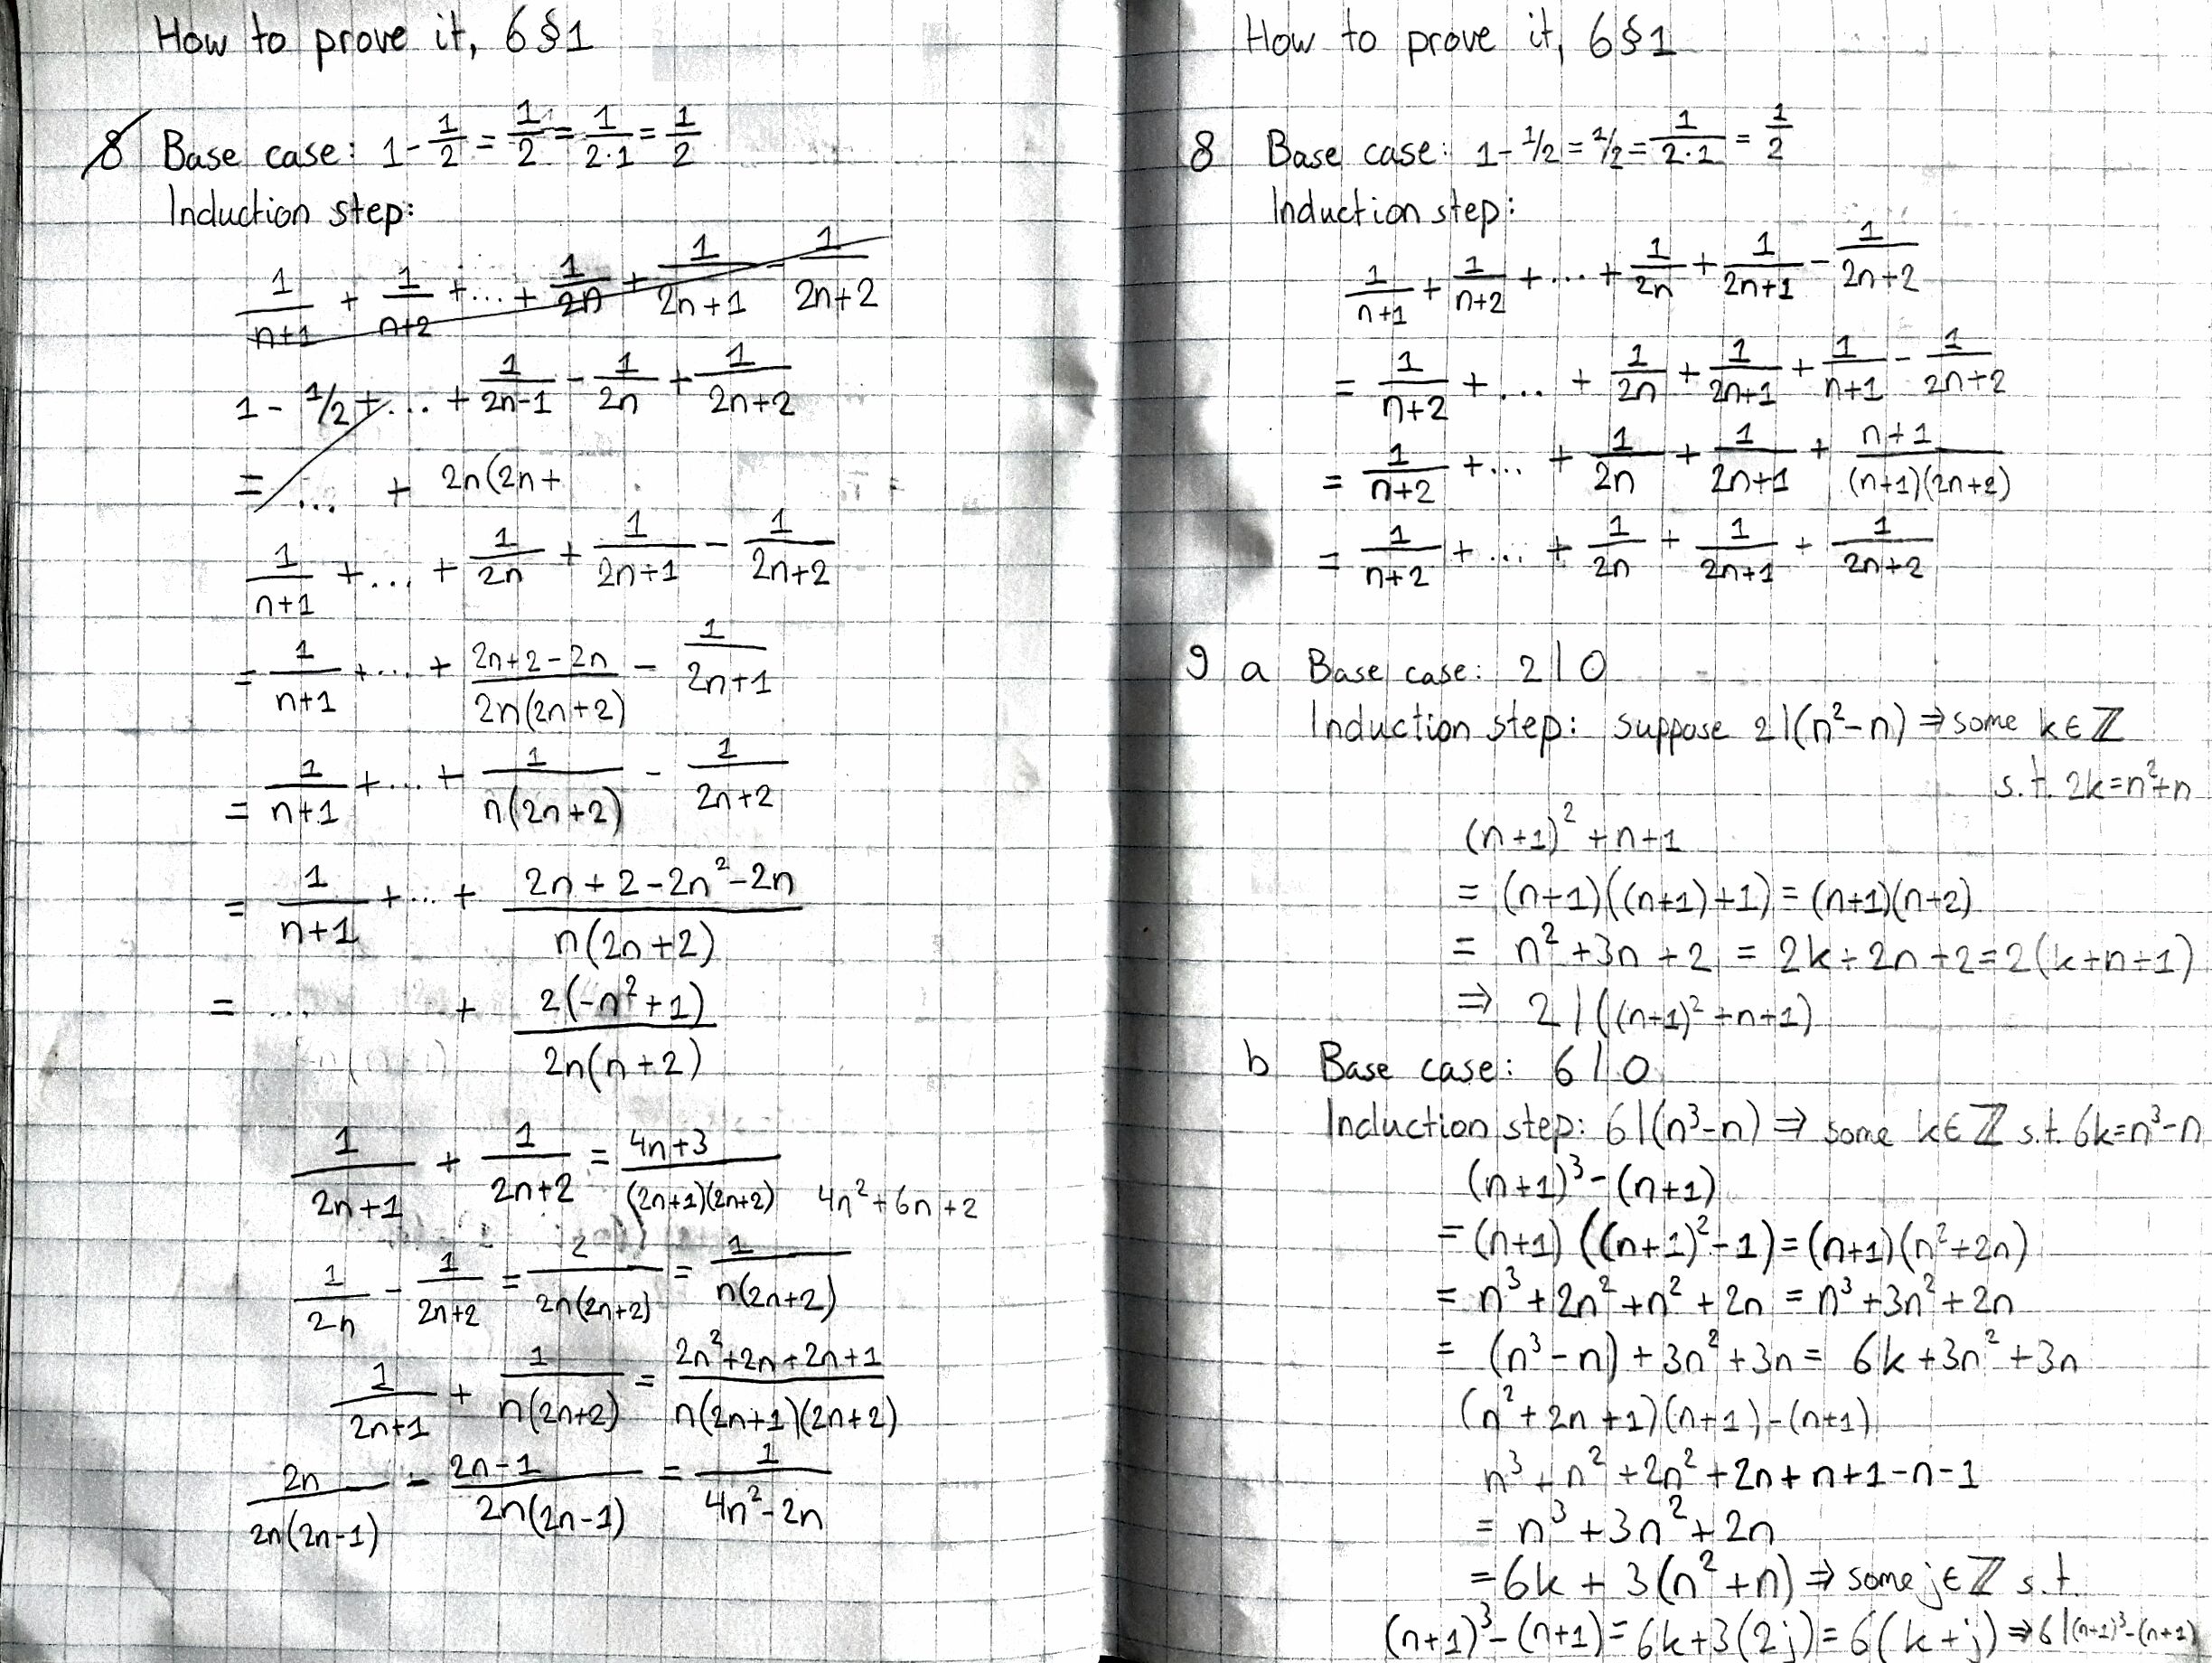 How to prove it, 6§1
8 Base case: 1 - 1/2 = 1/2 = 1/(2·1) = 1/2
Induction step:
1/(n+1) + 1/(n+2) + ... + 1/(2n) + 1/(2n+1) - 1/(2n+2)
1 - 1/2 + ... + 1/(2n-1) - 1/(2n) + 1/(2n+2)
= ... + 2n(2n+
1/(n+1) + ... + 1/(2n) + 1/(2n+1) - 1/(2n+2)
= 1/(n+1) + ... + (2n+2-2n)/(2n(2n+2)) - 1/(2n+1)
= 1/(n+1) + ... + 1/(n(2n+2)) - 1/(2n+2)
= 1/(n+1) + ... + (2n+2-2n²-2n)/(n(2n+2))
= ... + 2(-n²+1)/(2n(n+2))
1/(2n+1) + 1/(2n+2) = (4n+3)/((2n+1)(2n+2)) 4n²+6n+2
1/(2n) - 1/(2n+2) = 2/(2n(2n+2)) = 1/(n(2n+2))
1/(2n+1) + 1/(n(2n+2)) = (2n²+2n+2n+1)/(n(2n+1)(2n+2))
2n/(2n(2n-1)) - (2n-1)/(2n(2n-1)) = 1/(4n²-2n)
How to prove it, 6§1
8 Base case: 1 - 1/2 = 1/2 = 1/(2·1) = 1/2
Induction step:
1/(n+1) + 1/(n+2) + ... + 1/(2n) + 1/(2n+1) - 1/(2n+2)
= 1/(n+2) + ... + 1/(2n) + 1/(2n+1) + 1/(n+1) - 1/(2n+2)
= 1/(n+2) + ... + 1/(2n) + 1/(2n+1) + (n+1)/((n+1)(2n+2))
= 1/(n+2) + ... + 1/(2n) + 1/(2n+1) + 1/(2n+2)
9 a Base case: 2|0
Induction step: suppose 2|(n²-n) ⇒ some k∈ℤ
s.t. 2k=n²+n
(n+1)² + n+1
= (n+1)((n+1)+1) = (n+1)(n+2)
= n²+3n+2 = 2k+2n+2 = 2(k+n+1)
⇒ 2|((n+1)²+n+1)
b Base case: 6|0
Induction step: 6|(n³-n) ⇒ some k∈ℤ s.t. 6k=n³-n
(n+1)³-(n+1)
= (n+1)((n+1)²-1) = (n+1)(n²+2n)
= n³+2n²+n²+2n = n³+3n²+2n
= (n³-n)+3n²+3n = 6k+3n²+3n
(n²+2n+1)(n+1)-(n+1)
n³+n²+2n²+2n+n+1-n-1
= n³+3n²+2n
= 6k+3(n²+n) ⇒ some j∈ℤ s.t.
(n+1)³-(n+1) = 6k+3(2j) = 6(k+j) ⇒ 6|(n+1)³-(n+1)